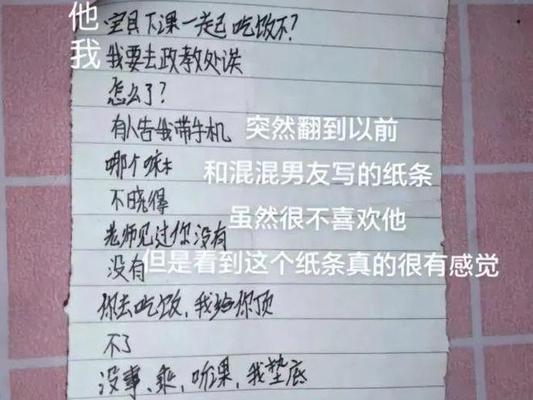 他 宝贝下课一起吃饭不?
我 我要去政教处诶
怎么了?
有人告我带手机
突然翻到以前
哪个嘛
和混混男友写的纸条
不晓得
虽然很不喜欢他
老师见过你没有
但是看到这个纸条真的很有感觉
没有
你去吃饭,我给你顶
不了
没事、乖,听课,我垫底